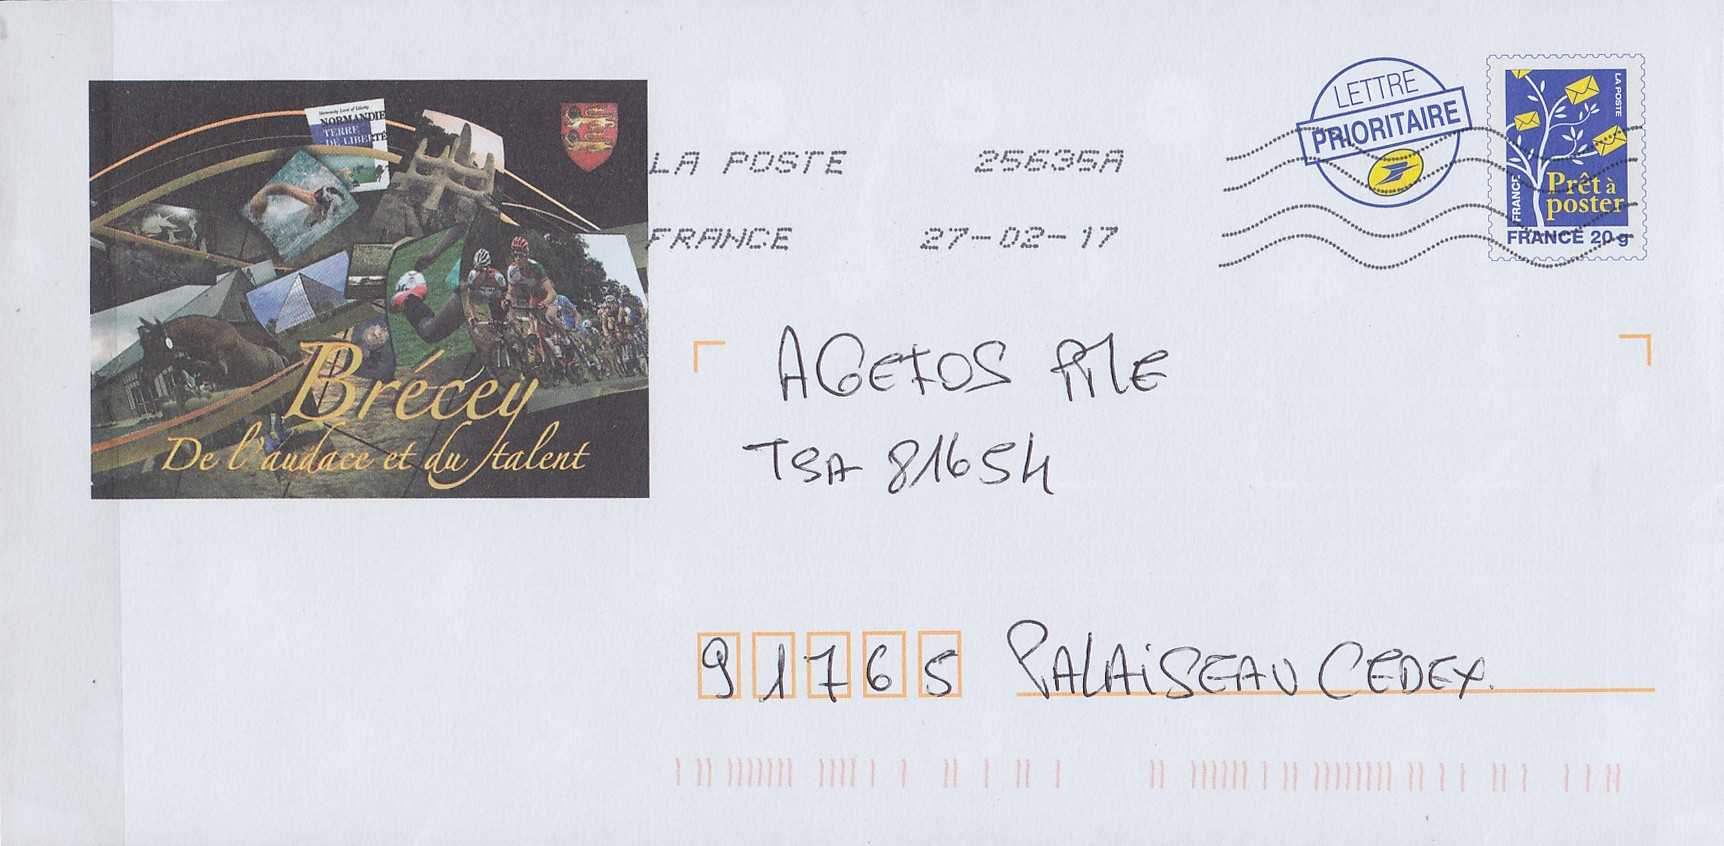 Normandy Land of Liberty
NORMANDIE
TERRE
DE LIBERTÉ
Brécey
De l'audace et du talent
LA POSTE 25635A
FRANCE 27-02-17
LETTRE
PRIORITAIRE
LA POSTE
FRANCE
Prêt à
poster
FRANCE 20 g
AGEFOS PME
TSA 81654
91765 PALAISEAU CEDEX.